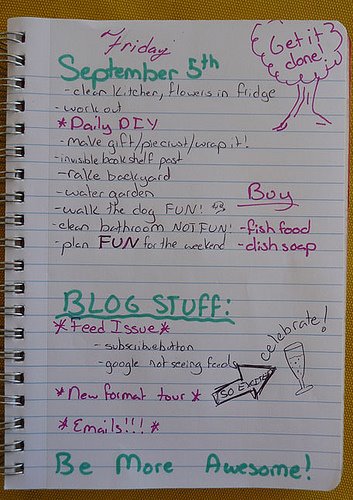 Friday
Get it done!
September 5th
- clean kitchen, flowers in fridge
- work out
* Daily DIY
- make gift/piecrust/wrap it!
- invisible bookshelf post
- rake backyard
- water garden
- walk the dog FUN!
- clean bathroom NOT FUN!
- plan FUN for the weekend
Buy
- fish food
- dish soap
BLOG STUFF:
* Feed Issue *
- subscribe button
- google not seeing feeds
celebrate!
* New format tour *
* Emails!!! *
Be More Awesome!